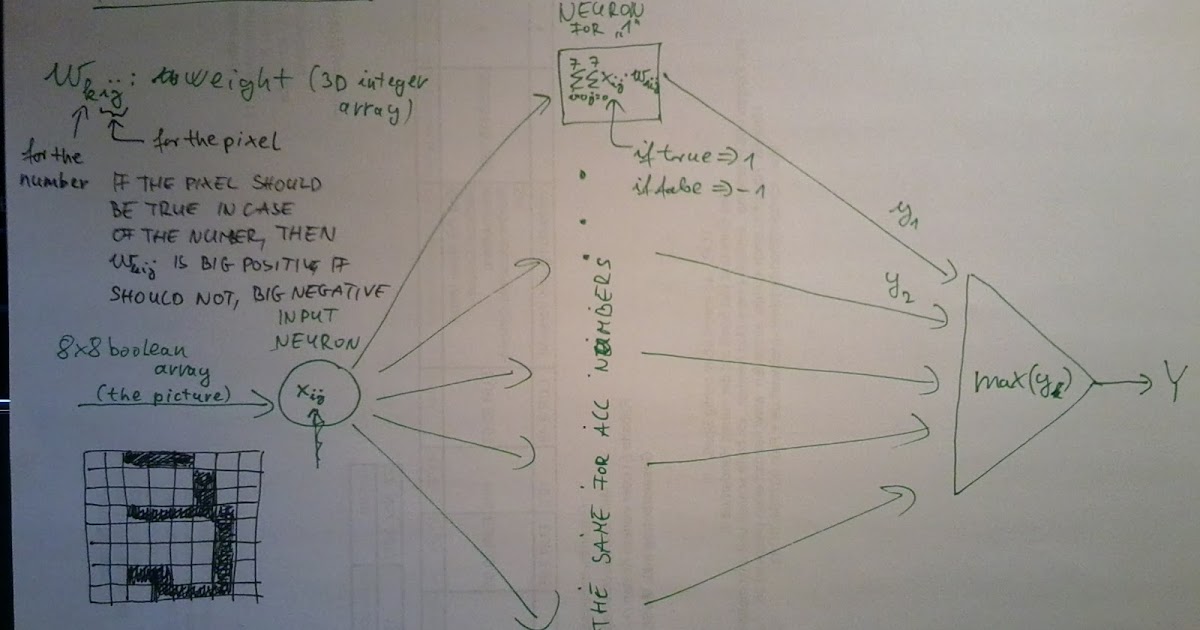 W_kij : weight (3D integer
array)
for the pixel
for the
number
IF THE PIXEL SHOULD
BE TRUE IN CASE
OF THE NUMER, THEN
W_kij IS BIG POSITIVE IF
SHOULD NOT, BIG NEGATIVE
INPUT
NEURON
8x8 boolean
array
(the picture)
x_ij
NEURON
FOR „1"
7 7
∑ ∑ x_ij · w_1ij
i=0 j=0
if true => 1
if false => -1
THE SAME FOR ALL NUMBERS
y_1
y_2
max(y_k)
Y